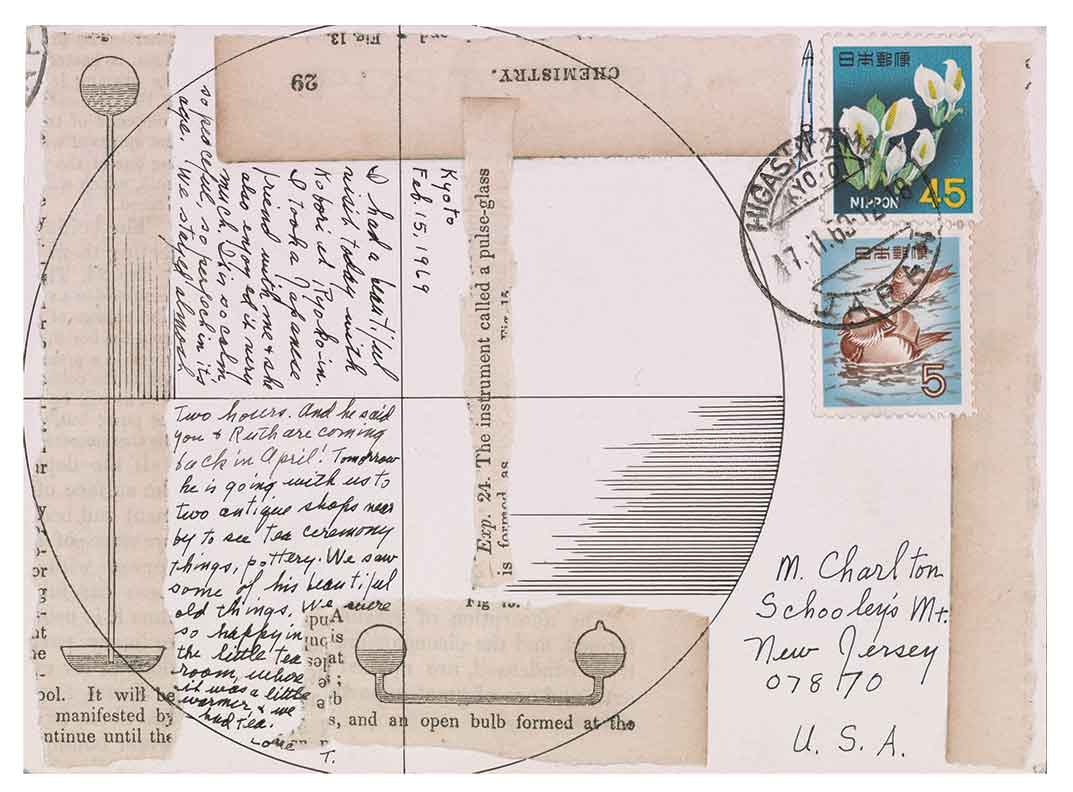 Fig. 13.
and
CHEMISTRY.
29
Kyoto
Feb, 15, 1969
I had a beautiful
visit today with
Kobori at Ryoko-in.
I took a Japanese
friend with me & she
also enjoyed it very
much. It is so calm
so peaceful, so perfect in its
age. We stayed almost
Two hours. And he said
you & Ruth are coming
back in April! Tomorrow
he is going with us to
two antique shops near
by to see tea ceremony
things, pottery. We saw
some of his beautiful
old things. We were
so happy in
the little tea
room, where
it was a little
warmer & we
had tea.
Love
T.
Exp. 24. The instrument called a pulse-glass
is formed as
ool. It will be
manifested by
ntinue until the
s, and an open bulb formed at the
日本郵便
NIPPON 45
日本郵便
5
KYOTO
JAPAN
M. Charlton
Schooley's Mt.
New Jersey
07870
U. S. A.